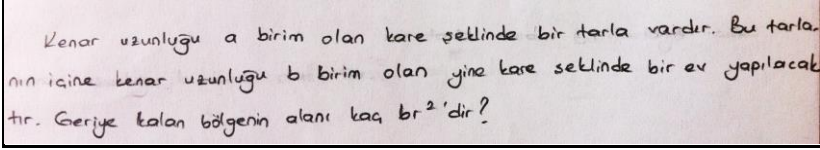 Kenar uzunluğu a birim olan kare şeklinde bir tarla vardır. Bu tarla-
nın içine kenar uzunluğu b birim olan yine kare şeklinde bir ev yapılacak
tır. Geriye kalan bölgenin alanı kaç br²'dir?